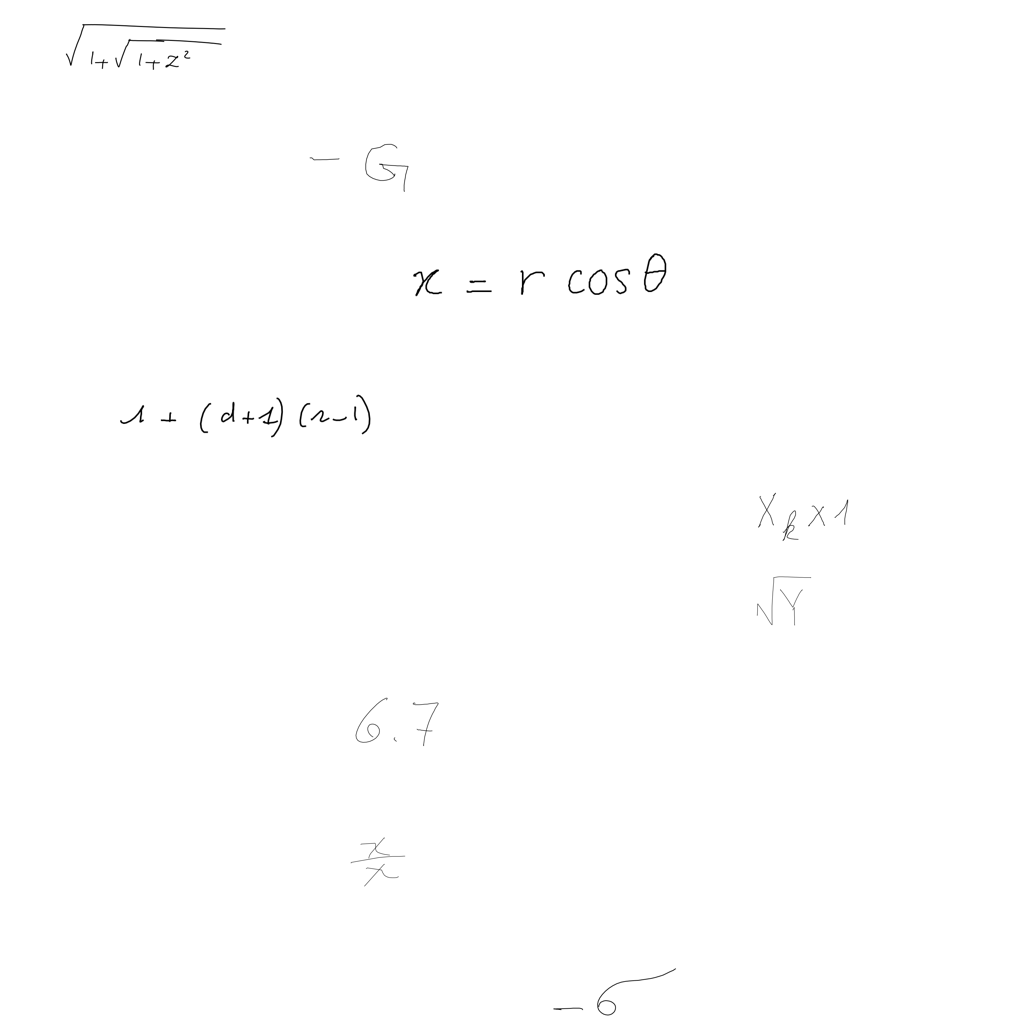 √(1+√(1+z²))
− G
x = r cosθ
1 + (d+1)(r−1)
X_k×1
√Y
6.7
x/x
−σ